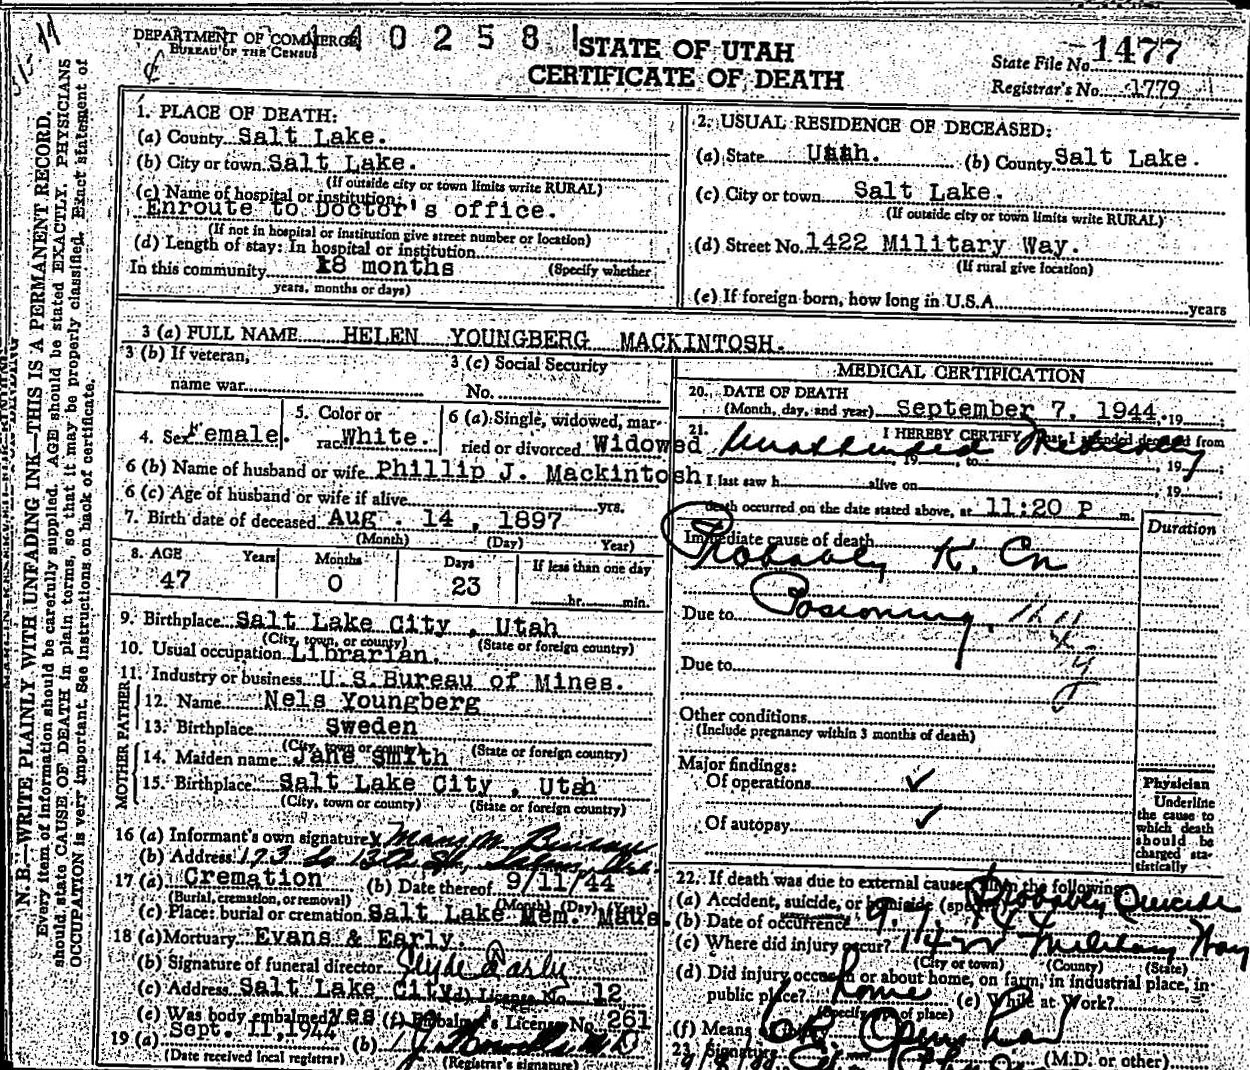 DEPARTMENT OF COMMERCE
BUREAU OF THE CENSUS
140258
STATE OF UTAH
CERTIFICATE OF DEATH
State File No. 1477
Registrar's No. 1779
N. B.—WRITE PLAINLY WITH UNFADING INK—THIS IS A PERMANENT RECORD.
Every item of information should be carefully supplied. AGE should be stated EXACTLY. PHYSICIANS
should state CAUSE OF DEATH in plain terms, so that it may be properly classified. Exact statement of
OCCUPATION is very important. See instructions on back of certificate.
1. PLACE OF DEATH:
(a) County Salt Lake.
(b) City or town Salt Lake.
(If outside city or town limits write RURAL)
(c) Name of hospital or institution:
Enroute to Doctor's office.
(If not in hospital or institution give street number or location)
(d) Length of stay: In hospital or institution
In this community 18 months (Specify whether
years, months or days)
2. USUAL RESIDENCE OF DECEASED:
(a) State Utah. (b) County Salt Lake.
(c) City or town Salt Lake.
(If outside city or town limits write RURAL)
(d) Street No. 1422 Military Way.
(If rural give location)
(e) If foreign born, how long in U.S.A. years
3 (a) FULL NAME HELEN YOUNGBERG MACKINTOSH.
3 (b) If veteran,
name war
3 (c) Social Security
No.
4. Sex Female.
5. Color or
race White.
6 (a) Single, widowed, mar-
ried or divorced Widowed
6 (b) Name of husband or wife Phillip J. Mackintosh
6 (c) Age of husband or wife if alive yrs.
7. Birth date of deceased Aug. 14, 1897
(Month) (Day) Year)
8. AGE Years Months Days If less than one day
47 0 23 hr. min.
9. Birthplace Salt Lake City, Utah
(City, town, or county) (State or foreign country)
10. Usual occupation Librarian.
11. Industry or business U.S.Bureau of Mines.
FATHER
12. Name Nels Youngberg
13. Birthplace Sweden
(City, town or county) (State or foreign country)
MOTHER
14. Maiden name Jane Smith
15. Birthplace Salt Lake City, Utah
(City, town or county) (State or foreign country)
16 (a) Informant's own signature x Mary M.
(b) Address 173 So 13th St,
17 (a) Cremation (b) Date thereof 9/11/44
(Burial, cremation, or removal) (Month) (Day) (Year)
(c) Place: burial or cremation Salt Lake Mem. Maus.
18 (a) Mortuary Evans & Early.
(b) Signature of funeral director Clyde Early
(c) Address Salt Lake City (d) License No. 12
(e) Was body embalmed yes (f) Embalmer's License No. 261
19 (a) Sept. 11, 1944 (b)
(Date received local registrar) (Registrar's signature)
MEDICAL CERTIFICATION
20. DATE OF DEATH
(Month, day, and year) September 7, 1944. 19
21. I HEREBY CERTIFY that I attended deceased from
Unattended Medically
19 , to , 19 ;
I last saw h alive on , 19 ;
death occurred on the date stated above, at 11:20 P m.
Immediate cause of death
Duration
Probably K. Cn
Due to Poisoning.
Due to
Other conditions
(Include pregnancy within 3 months of death)
Major findings:
Of operations ✓
Of autopsy ✓
Physician
Underline
the cause to
which death
should be
charged sta-
tistically
22. If death was due to external causes, fill in the following:
(a) Accident, suicide, or homicide (specify) Probably Suicide
(b) Date of occurrence 9.7.44
(c) Where did injury occur? 1422 Military Way
(City or town) (County) (State)
(d) Did injury occur in or about home, on farm, in industrial place, in
public place? Home (e) While at Work?
(Specify type of place)
(f) Means of
23. Signature (M.D. or other)